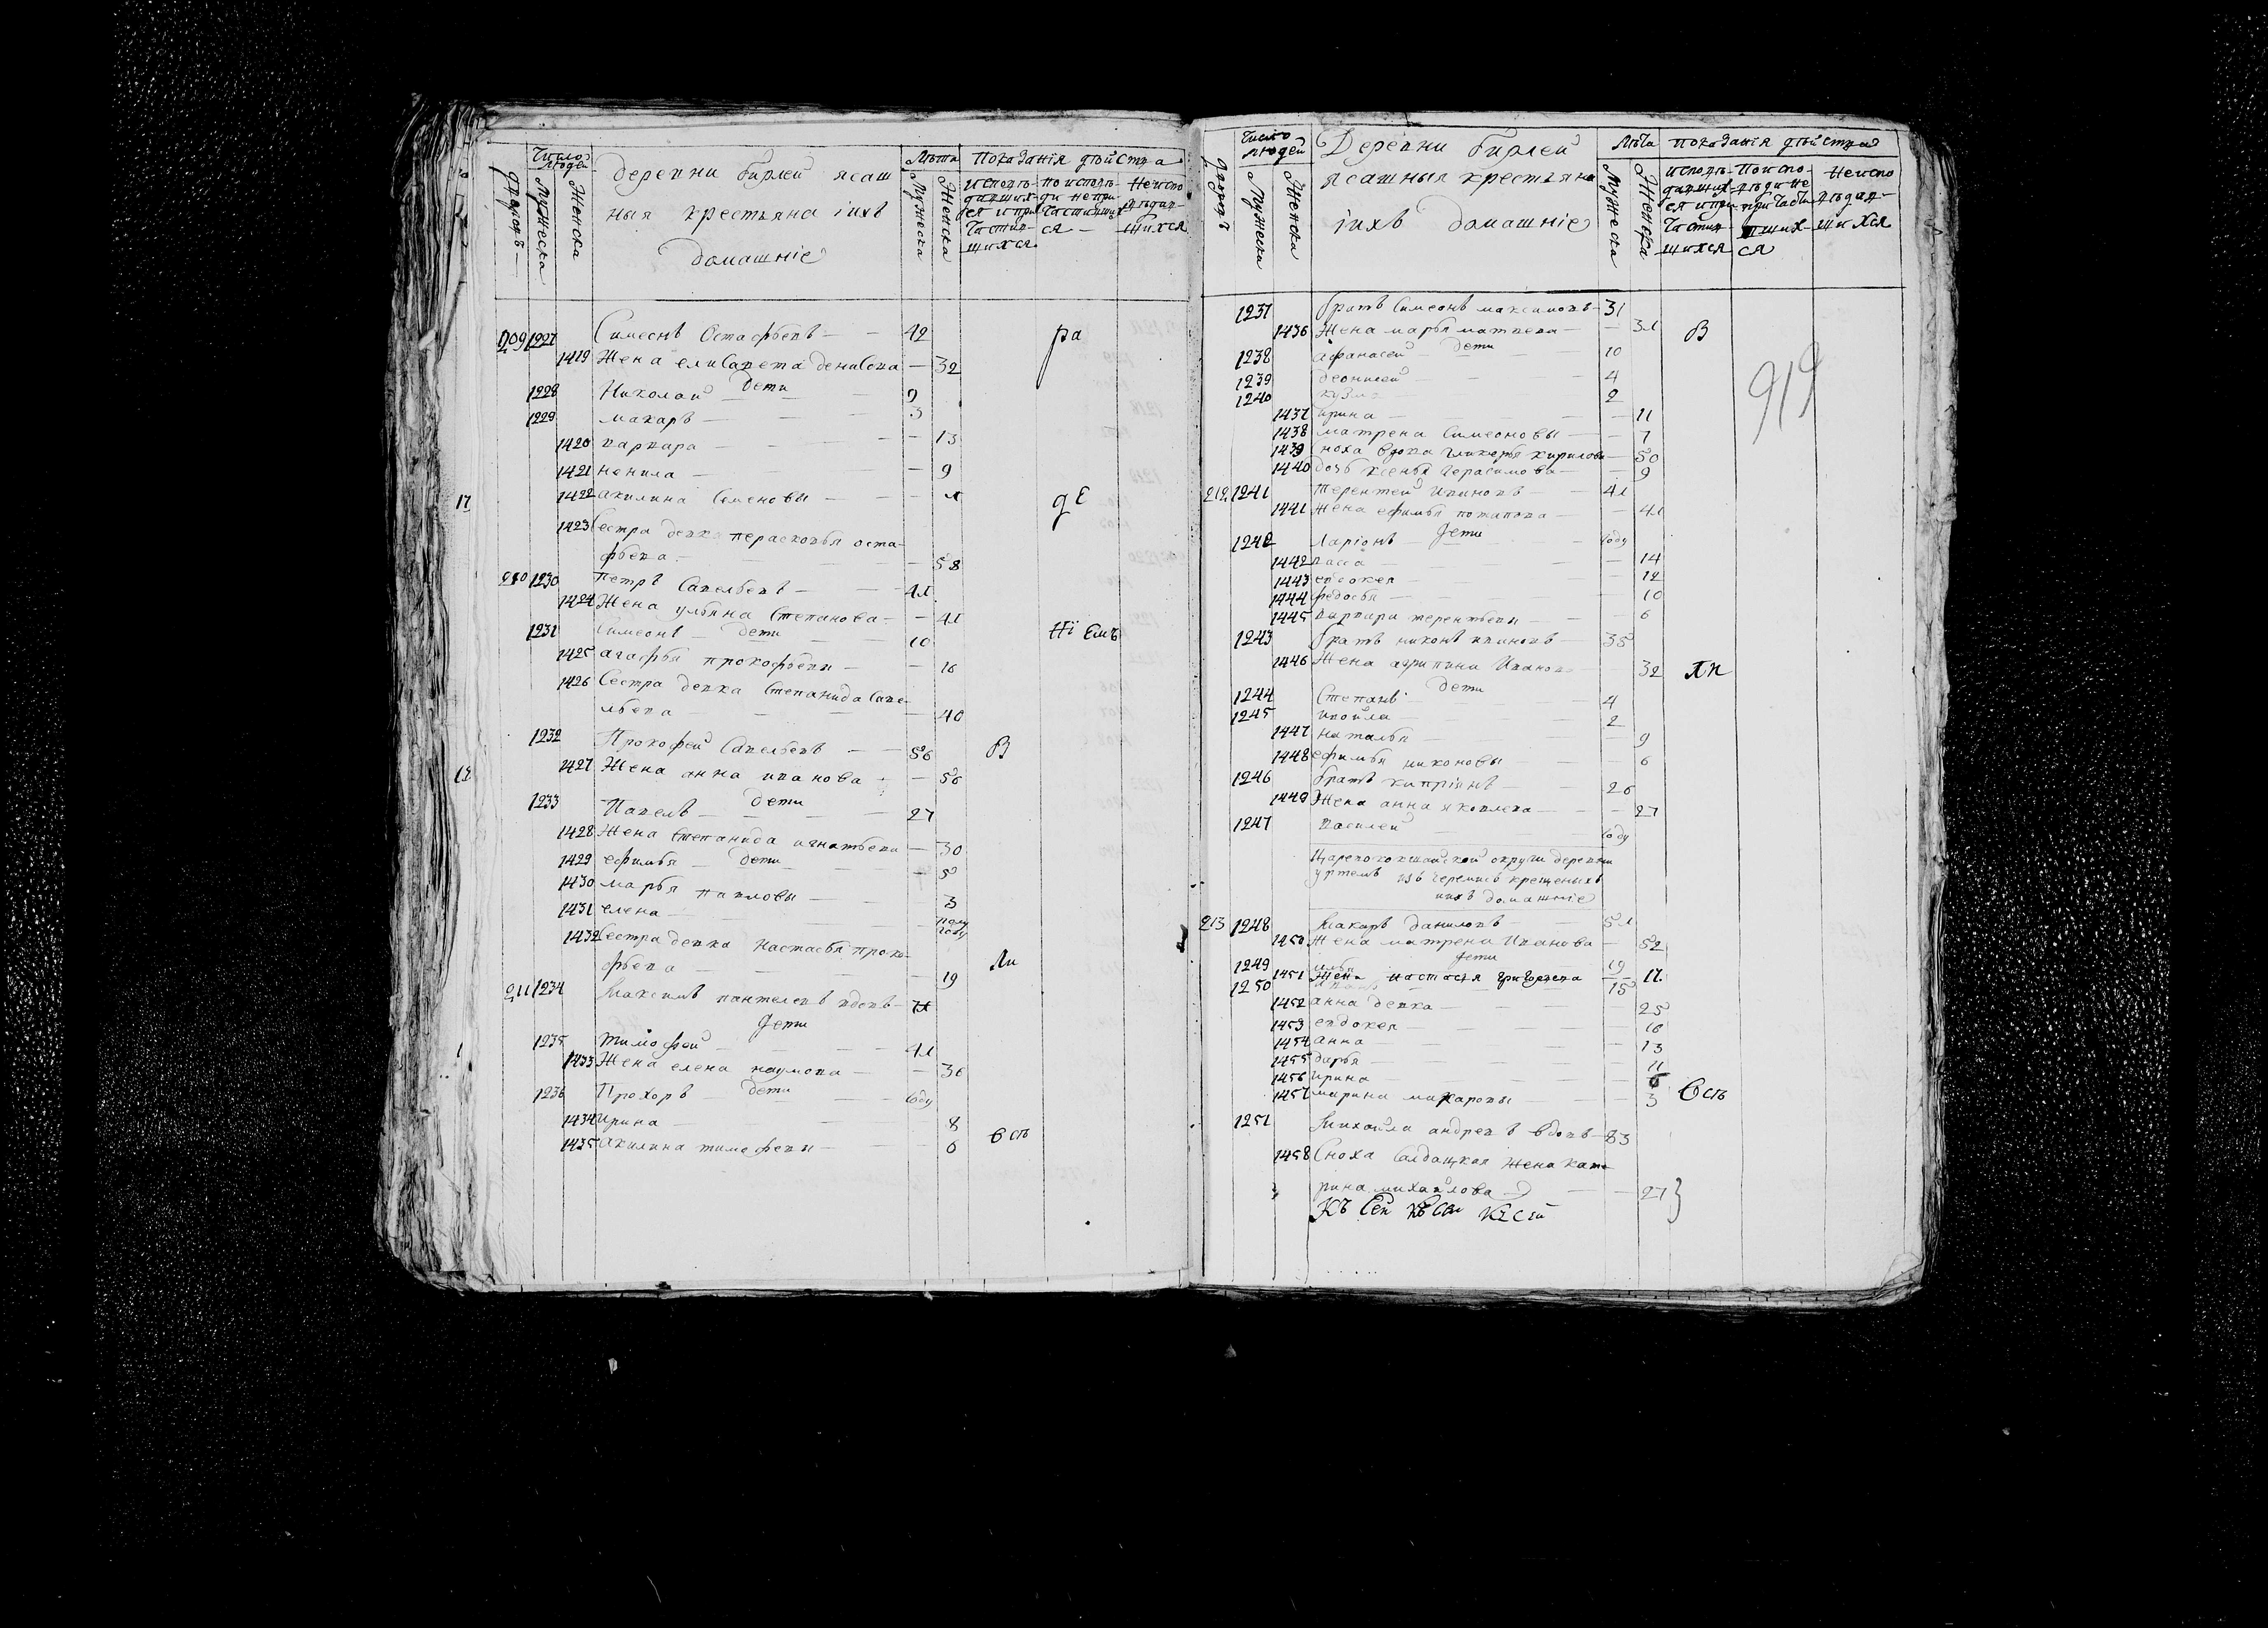 Число людей
дворовъ
Мужеска
Женска
деревни бирлеи ясаш
ныя крестьяна iихъ
домашнiе
Лѣта
Мужеска
Женска
показанiя дѣйства
исповѣ-
давших-
ся и при
частив-
шихся
по исповѣ-
ди не при-
частивших
ся
Неиспо
вѣдав-
шихся
209 1227 Симеонъ Остафьевъ — 42
1419 Жена елисавета денисова — 32
дети
1228 Николаи — 9
1229 макаръ — 3
1420 варвара — 13
1421 ненила — 9
1422 акилина Семеновы
1423 Сестра девка перасковья оста-
фьева — 58
210 1230 петръ Савельевъ
1424 Жена ульяна Степанова
дети
1231 Симеонъ — 10
1425 агафья прокофьевы — 16
1426 Сестра девка Степанида Саве-
льева — 40
1232 Прокофеи Савельевъ — 56
1427 Жена анна иванова — 56
дети
1233 Павелъ — 27
1428 Жена Степанида игнатьева — 30
дети
1429 ефимья — 5
1430 марья павловы — 3
1431 елена — полу году
1432 Сестра девка настасья проко-
фьева — 19
211 1234 Максимъ пантелеевъ вдовъ
дети
1235 тимофеи
1433 Жена елена наумова — 36
дети
1236 Прохоръ — году
1434 ирина — 8
1435 акилина тимофевы — 6
ра
де
нi емъ
В
Ли
Число людей
дворовъ
Мужеска
Женска
Деревни бирлеи
ясашныя крестьяна
iихъ домашнiе
Лѣта
Мужеска
Женска
показанiя дѣйства
исповѣ-
давших-
ся и при
частив-
шихся
По испо-
вѣди не
причасти
вших-
ся
Неиспо
вѣдав-
шихся
919
1237 братъ Симеонъ максимовъ — 31
1436 Жена марья матвеева
дети
1238 афанасеи — 10
1239 деонисеи — 4
1240 кузма — 2
1437 ирина — 11
1438 матрена Симеоновы — 7
1439 Сноха вдова гликерья кирилова — 50
1440 дочь ксенья герасимова — 9
212 1241 терентеи Ивановъ
1441 Жена ефимья потапова
дети
1242 Ларiонъ — году
1442 васса — 14
1443 евдокея — 12
1444 федосья — 10
1445 варвара терентьевы — 6
1243 братъ никонъ ивановъ — 35
1446 Жена агрипина Иванова — 32
дети
1244 Степанъ — 4
1245 ивоила — 2
1447 наталья — 9
1448 ефимья никоновы — 6
1246 братъ киприянъ — 26
1449 Жена анна яковлева — 27
1247 василеи — году
Царевококшаискои округи деревни
уртемъ изъ черемисъ крещеныхъ
ихъ домашнiе
213 1248 Макаръ даниловъ
1450 Жена матрена Иванова — 52
дети
1249 илья — 19
1451 Жена настасья григорева
1250 — 15
1452 анна девка — 25
1453 евдокея
1454 анна — 13
1455 дарья — 11
1456 ирина
1457 марина макаровы — 3
1251 Михаила андреевъ вдовъ — 83
1458 Сноха Салдацкая жена кате
рина михаилова — 27
В